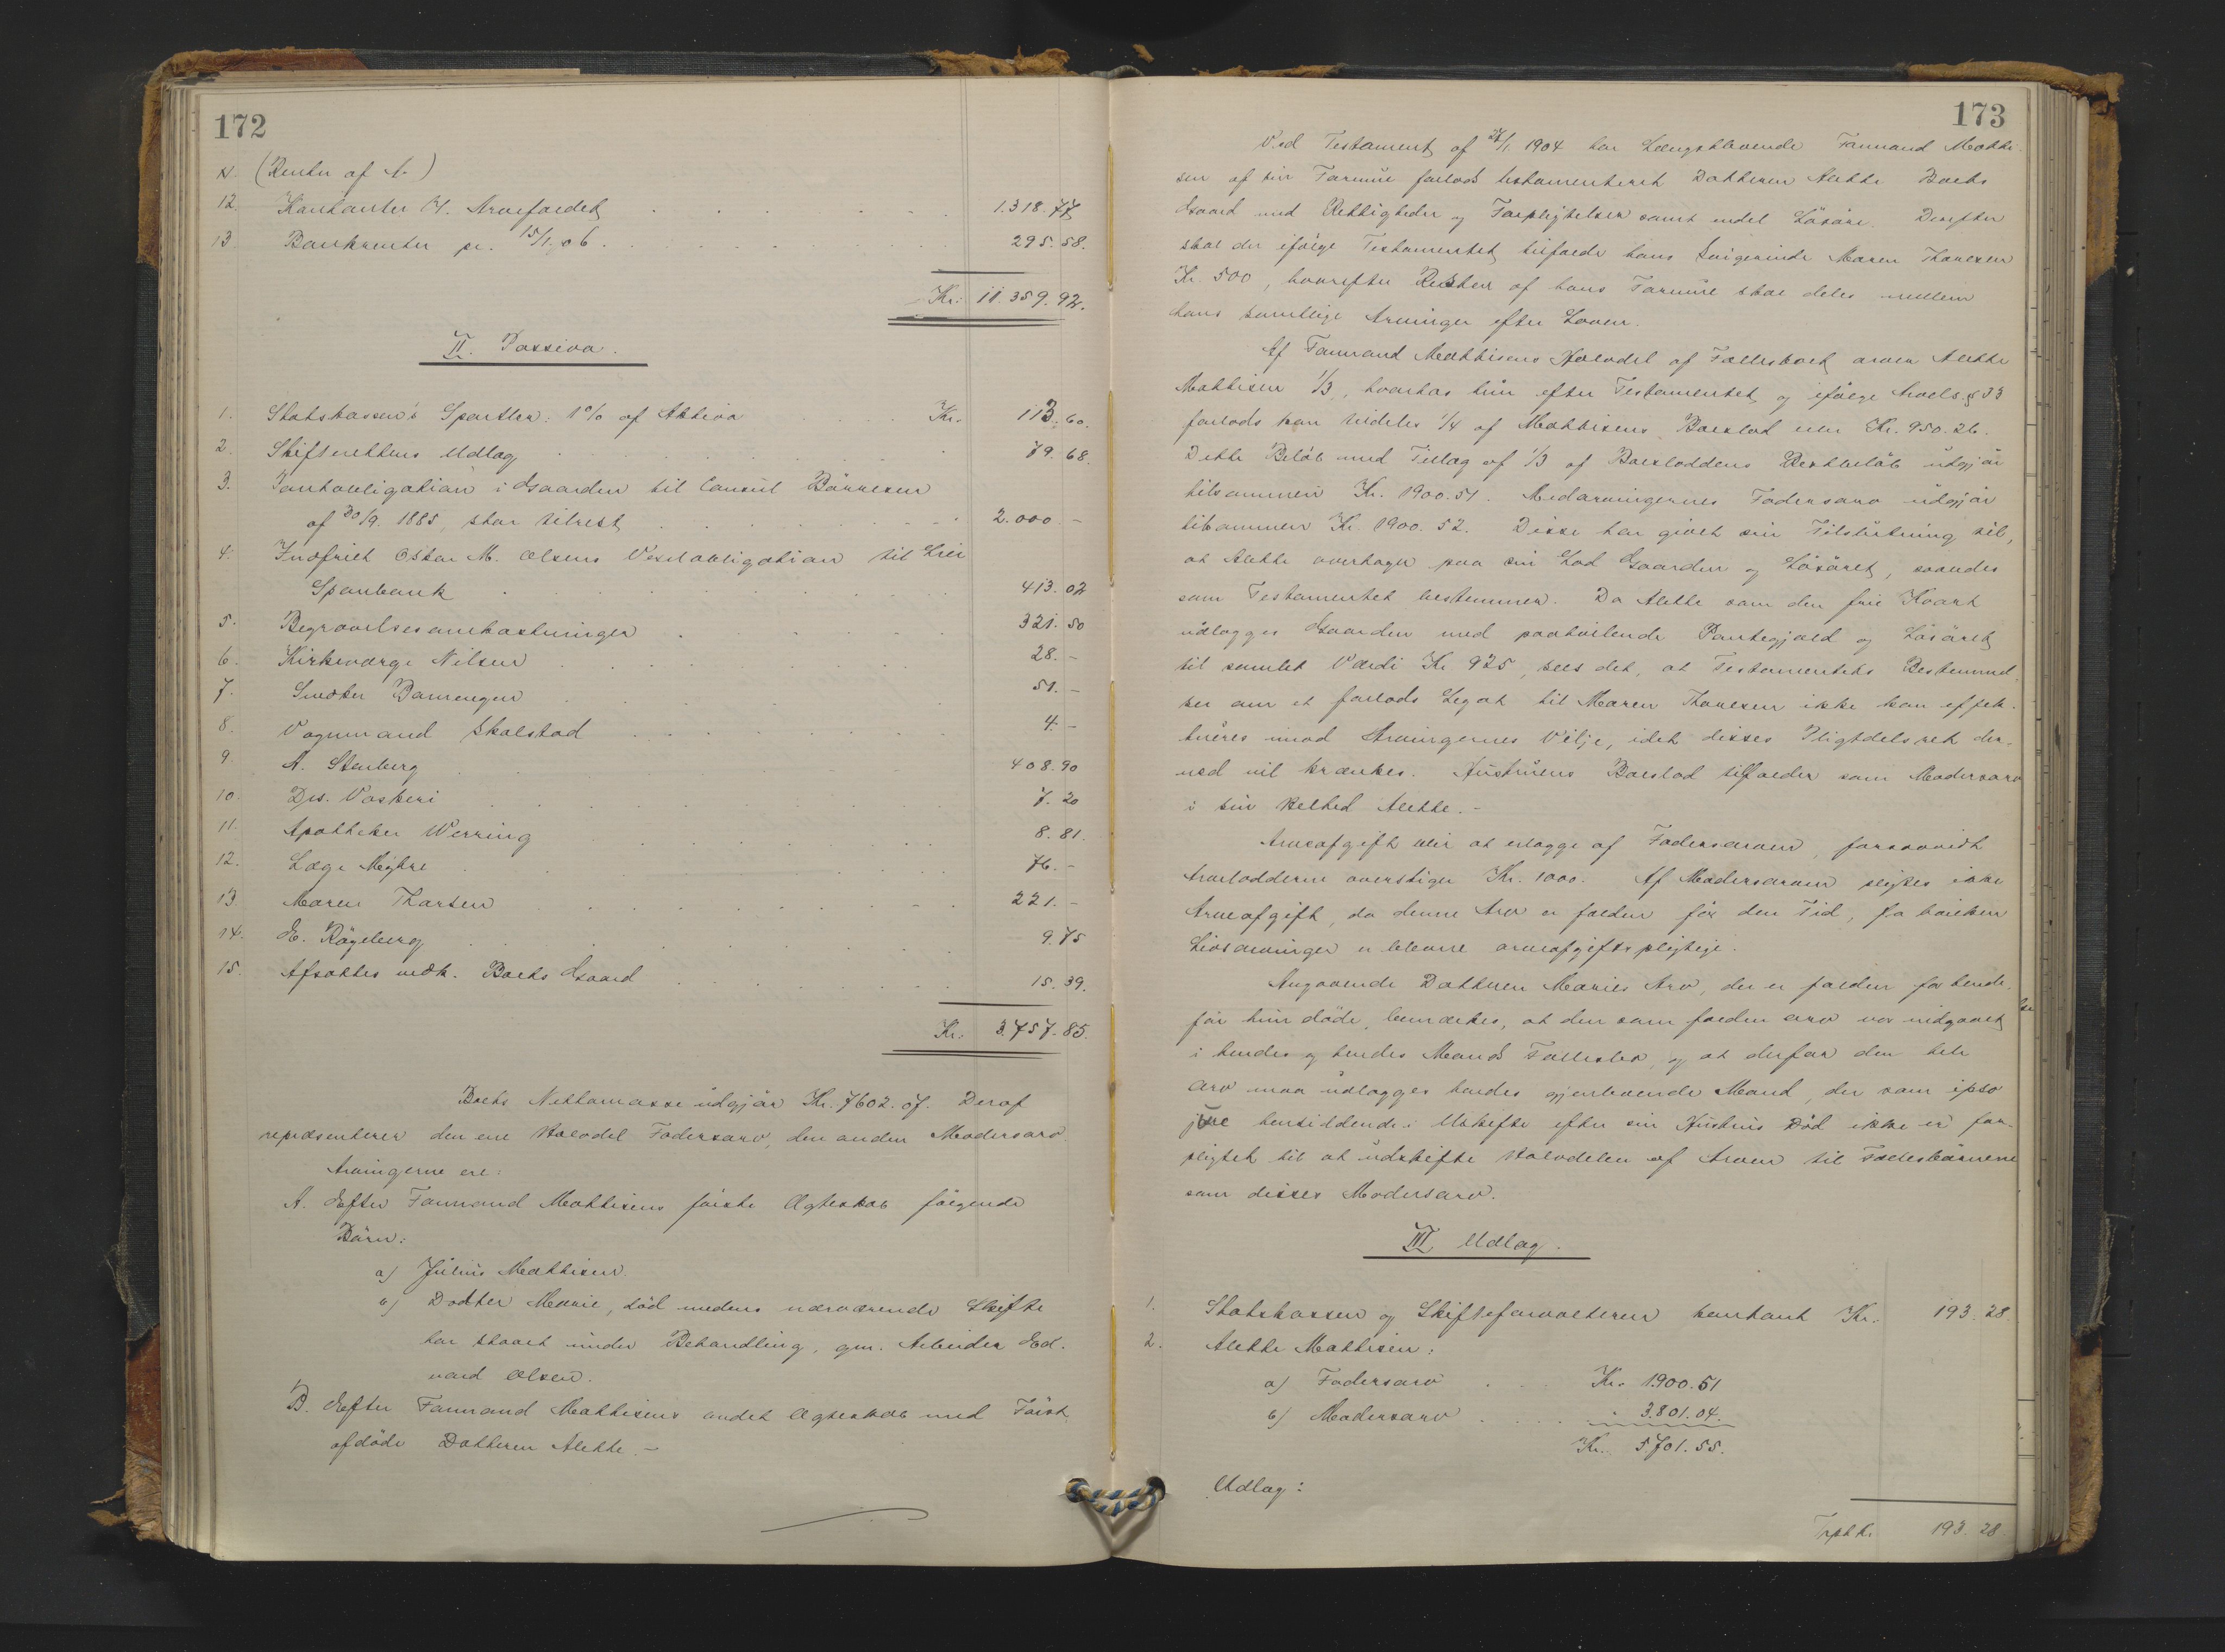 172
N. (Renter af A.)
12. Kontanter v. Arvefaldet 1.318.77
13. Bankrenter pr. 15/1 06. 295.58.
Kr. 11.359.92.
II. Passiva.
1. Statskassens Sportler: 1% af Aktiva Kr. 113.60.
2. Skifterettens Udlæg 79.68.
3. Pantobligation i Gaarden til Consul Börresen
af 30/9. 1885, star tilrest 2.000 -
4. Indfriet Oskar M. Olsens Vexelobligation til Lier
Sparebank 413.02
5. Begravelsesomkostninger 321.50
6. Kirkeværge Nilsen 28.-
7. Snedker 51.-
8. Vognmand Skalstad 4.-
9. A. Stenberg 408.90
10. Ds. Vaskeri 7.20
11. Apotheker Werring 8.81.
12. Læge Myhre 76.-
13. Maren Thorsen 221.-
14. E. Rögeberg 9.75
15. Afsættes vedk. Boets Gaard 15.39.
Kr. 3.757.85.
Boets Nettomasse udgjör Kr. 7602.07. Deraf
repræsenterer den ene Halvdel Fadersarv, den anden Modersarv.
Arvingerne ere:
A. Efter Formand Mathisens förste Ægteskab fölgende
Börn:
a) Julius Mathisen.
b) Datter Marie, död medens nærværende Skifte
har staaet under Behandling, gm. Arbeider Ed-
vard Olsen.
B. Efter Formand Mathisens andet Ægteskab med Först-
afdöde Datteren Alethe. -
173
Ved Testament af 27/1 1904 har Længstlevende Formand Mathi-
sen af sin Formue forlods testamenteret Datteren Alethe Boets
Gaard med Rettigheder og Forpligtelser samt endel Lösöre. Derefter
skal der ifölge Testamentet tilfalde hans Svigerinde Maren Thoresen
Kr. 500, hvorefter Resten af hans Formue skal deles mellem
hans samtlige Arvinger efter Loven.
Af Formand Mathisens Halvdel af Fællesboet arver Alethe
Mathisen 1/3, hvorhos hun efter Testamentet og ifölge Arvels. § 33
forlods kan tildeles 1/4 af Mathisens Boeslod eller Kr. 950.26.
Dette Belöb med Tillæg af 1/3 af Boesloddens Restbelöb udgjör
tilsammen Kr. 1900.51. Medarvingernes Fadersarv udgjör
tilsammen Kr. 1900.52. Disse har givet sin Tilslutning til,
at Alethe overtager paa sin Lod Gaarden og Lösöret, saaledes
som Testamentet bestemmer. Da Alethe som den frie Hvart
udlægges Gaarden med paahvilende Pantegjæld og Lösöret
til samlet Værdi Kr. 925, sees det, at Testamentets Bestemmel-
ser om et forlods Legat til Maren Thoresen ikke kan effek-
tueres imod Arvingernes Vilje, idet disses Pligtdelsret der-
ved vil krænkes. Hustruens Boeslod tilfalder som Modersarv
i sin Helhed Alethe. -
Arveafgift blir at erlægge af Fadersarven, forsaavidt
Arvelodderne overstiger Kr. 1000. Af Modersarven svares ikke
Arveafgift, da denne Arv er falden för den Tid, fra hvilken
Livsarvinger er blevne arveafgiftspligtige.
Angaaende Datteren Maries Arv, der er falden for hende,
för hun döde, bemærkes, at den som falden arv var indgaaet
i hendes og hendes Mands Fællesbo, og at derfor den hele
arv maa udlægges hendes gjenlevende Mand, der som ipso
jure hensiddende i Uskifte efter sin Hustrus Död ikke er for-
pligtet til at udskifte Halvdelen af Arven til Fællesbörnene
som disses Modersarv.
III Udlæg.
1. Statskassen og Skifteforvalteren kontant Kr. 193.28.
2. Alethe Mathisen:
a) Fadersarv Kr. 1900.51
b) Modersarv - 3.801.04.
Kr. 5.701.55.
Udlæg:
Trpt. Kr. 193.28.